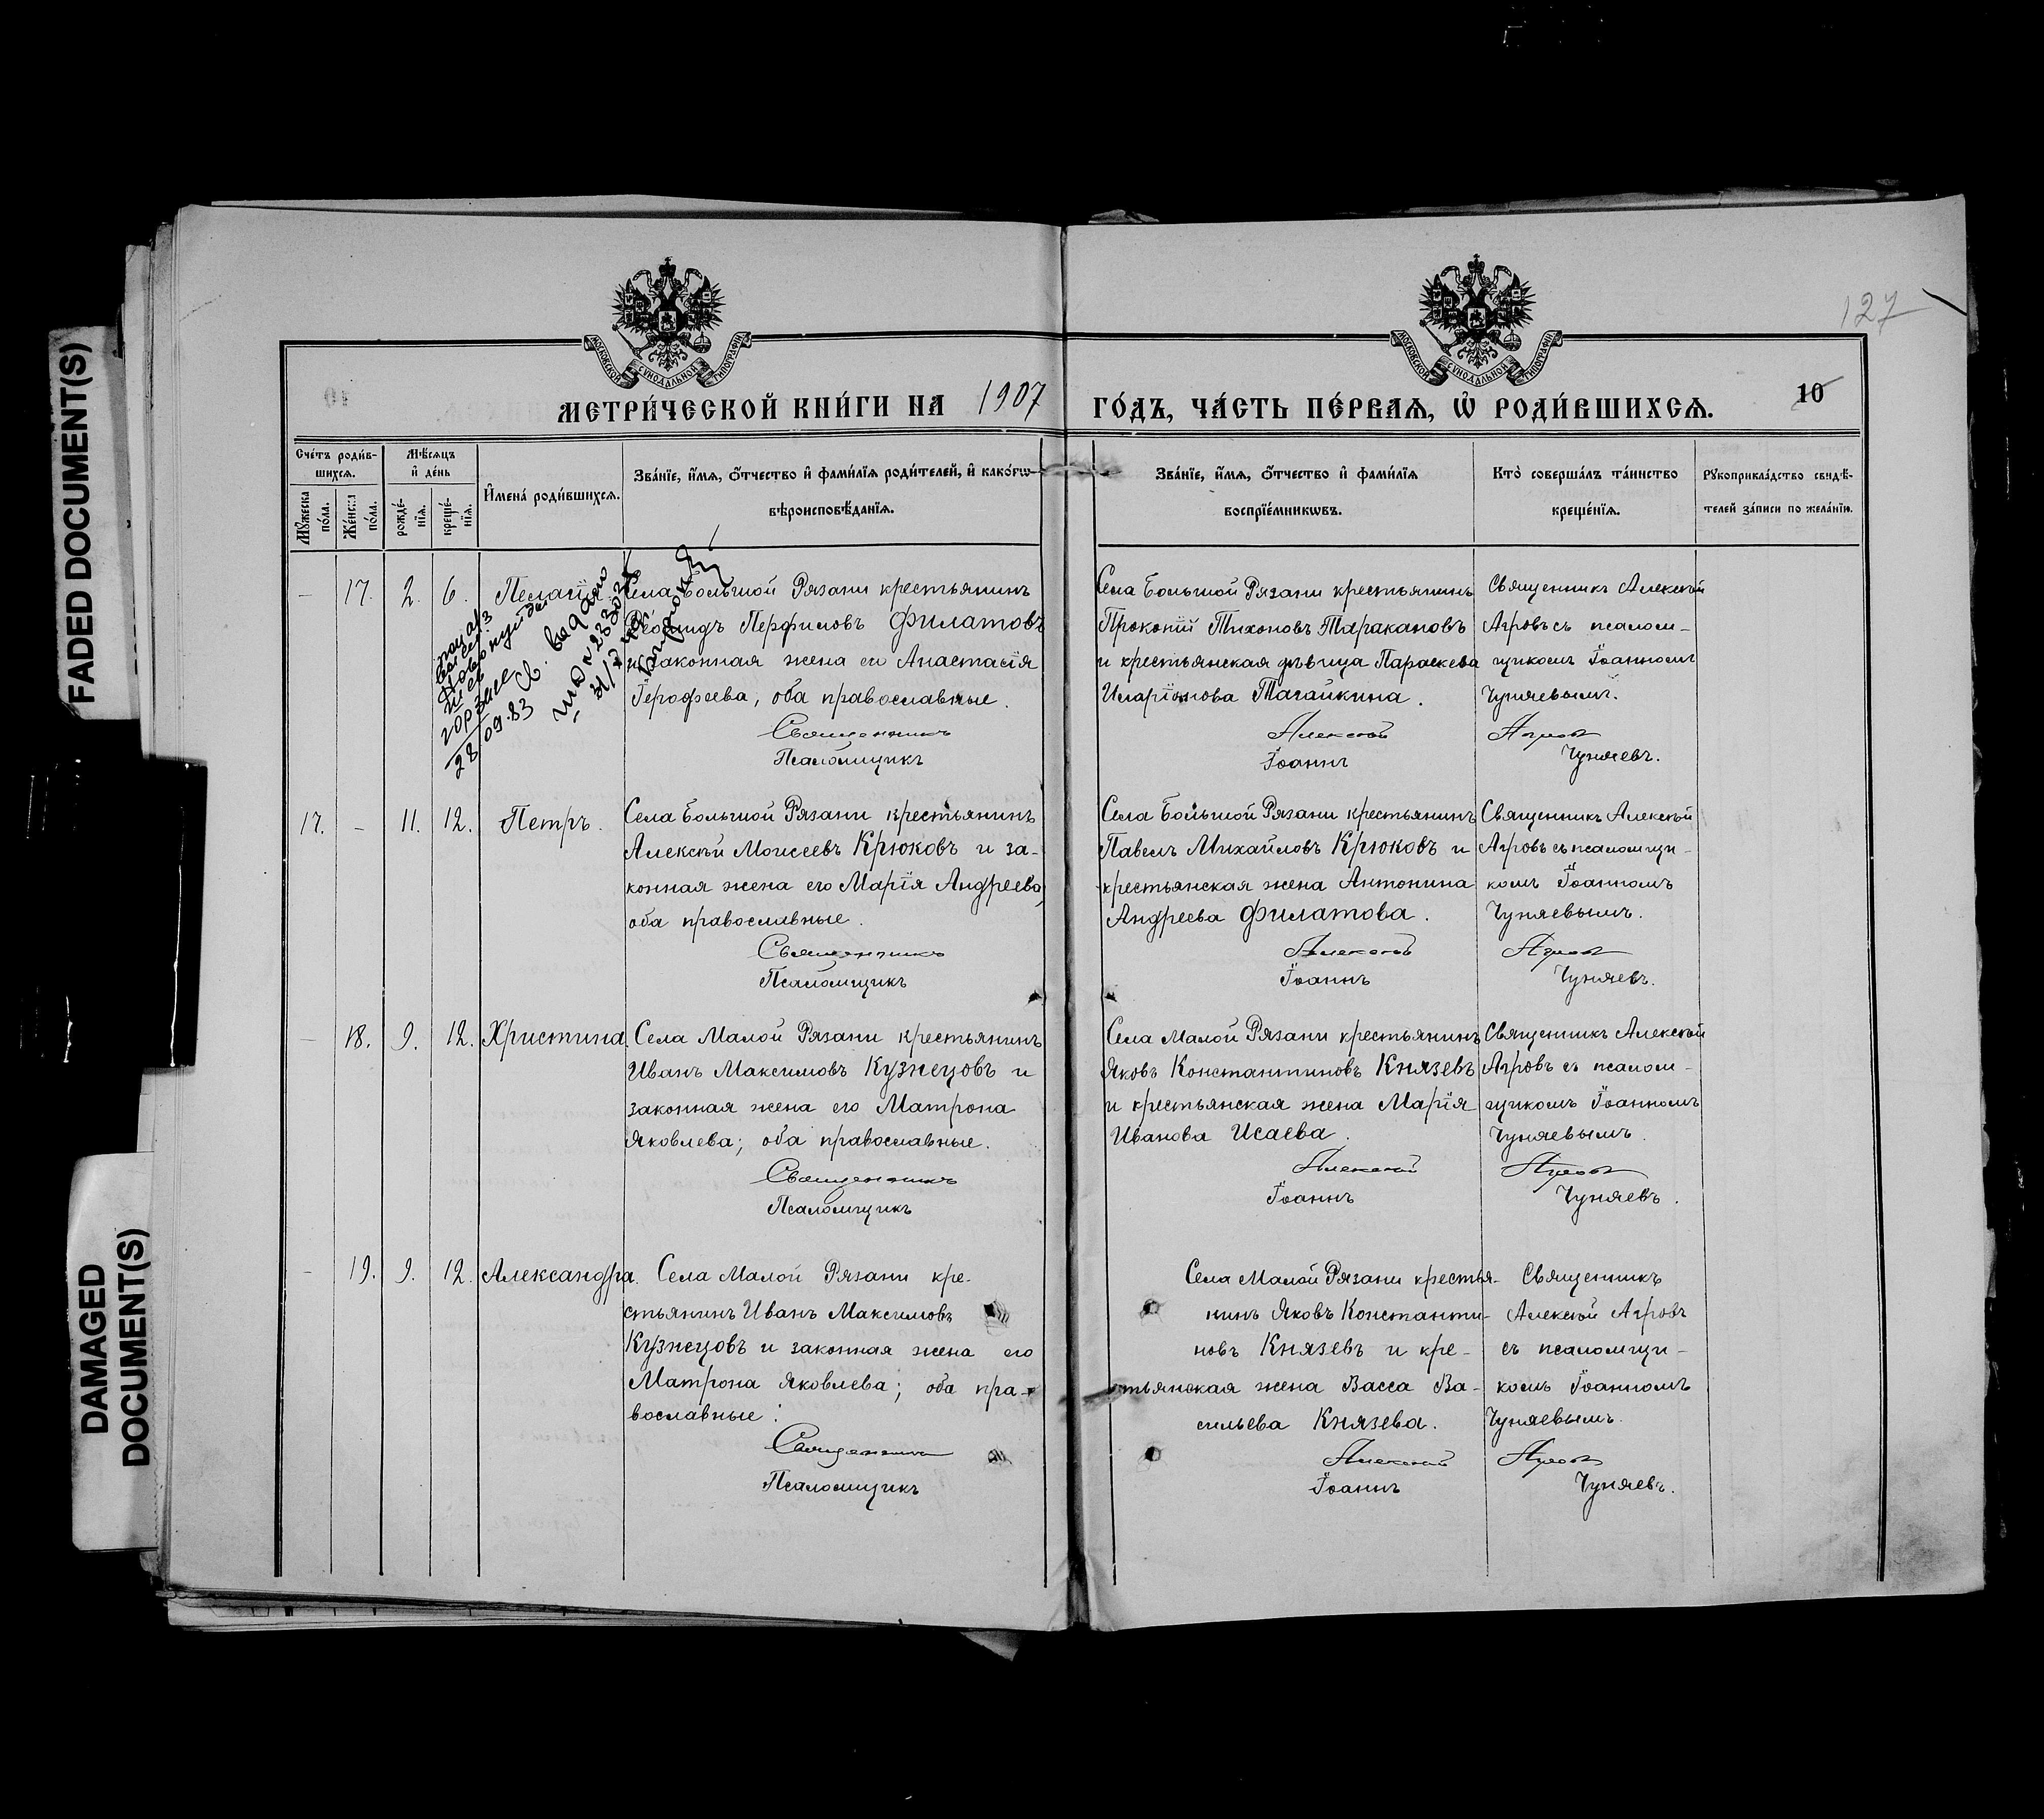 FADED DOCUMENT(S)
DAMAGED
DOCUMENT(S)
127
МОСКОВСКОЙ СУНОДАЛЬНОЙ ТИПОГРАФІИ
МОСКОВСКОЙ СУНОДАЛЬНОЙ ТИПОГРАФІИ
10
МЕТРИ́ЧЕСКОЙ КНИ́ГИ НА 1907 ГО́ДЪ, ЧА́СТЬ ПЕ́РВАѦ, Ѽ РОДИ́ВШИХСѦ.
Сче́тъ роди́вшихсѧ.
Мꙋ́жеска по́ла.
Же́нска по́ла.
Мѣ́сѧцъ и҆ де́нь
рожде́нїѧ.
креще́нїѧ.
И҆мена̀ роди́вшихсѧ.
Зва́нїе, и҆́мѧ, ѻ҆́тчество и҆ фами́лїѧ роди́телей, и҆ како́гѡ
вѣроисповѣ́данїѧ.
Зва́нїе, и҆́мѧ, ѻ҆́тчество и҆ фами́лїѧ
воспрїе́мникѡвъ.
Кто̀ соверша́лъ та́инство
креще́нїѧ.
Рꙋкоприкла́дство свидѣ́-
телей за́писи по жела́нїю.
— 17. 2. 6. Пелагія.
Села Большой Рязани крестьянинъ
Леонидъ Перфиловъ Филатовъ
и законная жена его Анастасія
Іерофеева, оба православные.
Священникъ
Псаломщикъ
28/09.83
Села Большой Рязани крестьянинъ
Прокопій Тихоновъ Таракановъ
и крестьянская дѣвица Параскева
Иларіонова Тагайкина.
Алексій
Іоаннъ
Священникъ Алексій
Агровъ съ псалом-
щикомъ Іоанномъ
Чуняевымъ.
Агровъ
Чуняевъ.
17. — 11. 12. Петръ.
Села Большой Рязани крестьянинъ
Алексѣй Моисеевъ Крюковъ и за-
конная жена его Марія Андреева,
оба православные.
Священникъ
Псаломщикъ
Села Большой Рязани крестьянинъ
Павелъ Михайловъ Крюковъ и
крестьянская жена Антонина
Андреева Филатова.
Алексій
Іоаннъ
Священникъ Алексій
Агровъ съ псаломщи-
комъ Іоанномъ
Чуняевымъ.
Агровъ
Чуняевъ.
— 18. 9. 12. Христина.
Села Малой Рязани крестьянинъ
Иванъ Максимовъ Кузнецовъ и
законная жена его Матрона
Яковлева; оба православные.
Священникъ
Псаломщикъ
Села Малой Рязани крестьянинъ
Яковъ Константиновъ Князевъ
и крестьянская жена Марія
Иванова Исаева.
Алексій
Іоаннъ
Священникъ Алексій
Агровъ съ псалом-
щикомъ Іоанномъ
Чуняевымъ.
Агровъ
Чуняевъ.
— 19. 9. 12. Александра.
Села Малой Рязани кре-
стьянинъ Иванъ Максимовъ
Кузнецовъ и законная жена его
Матрона Яковлева; оба пра-
вославные.
Священникъ
Псаломщикъ
Села Малой Рязани крестья-
нинъ Яковъ Константи-
новъ Князевъ и кре-
стьянская жена Васса Ва-
сильева Князева.
Алексій
Іоаннъ
Священникъ
Алексій Агровъ
съ псаломщи-
комъ Іоанномъ
Чуняевымъ.
Агровъ
Чуняевъ.